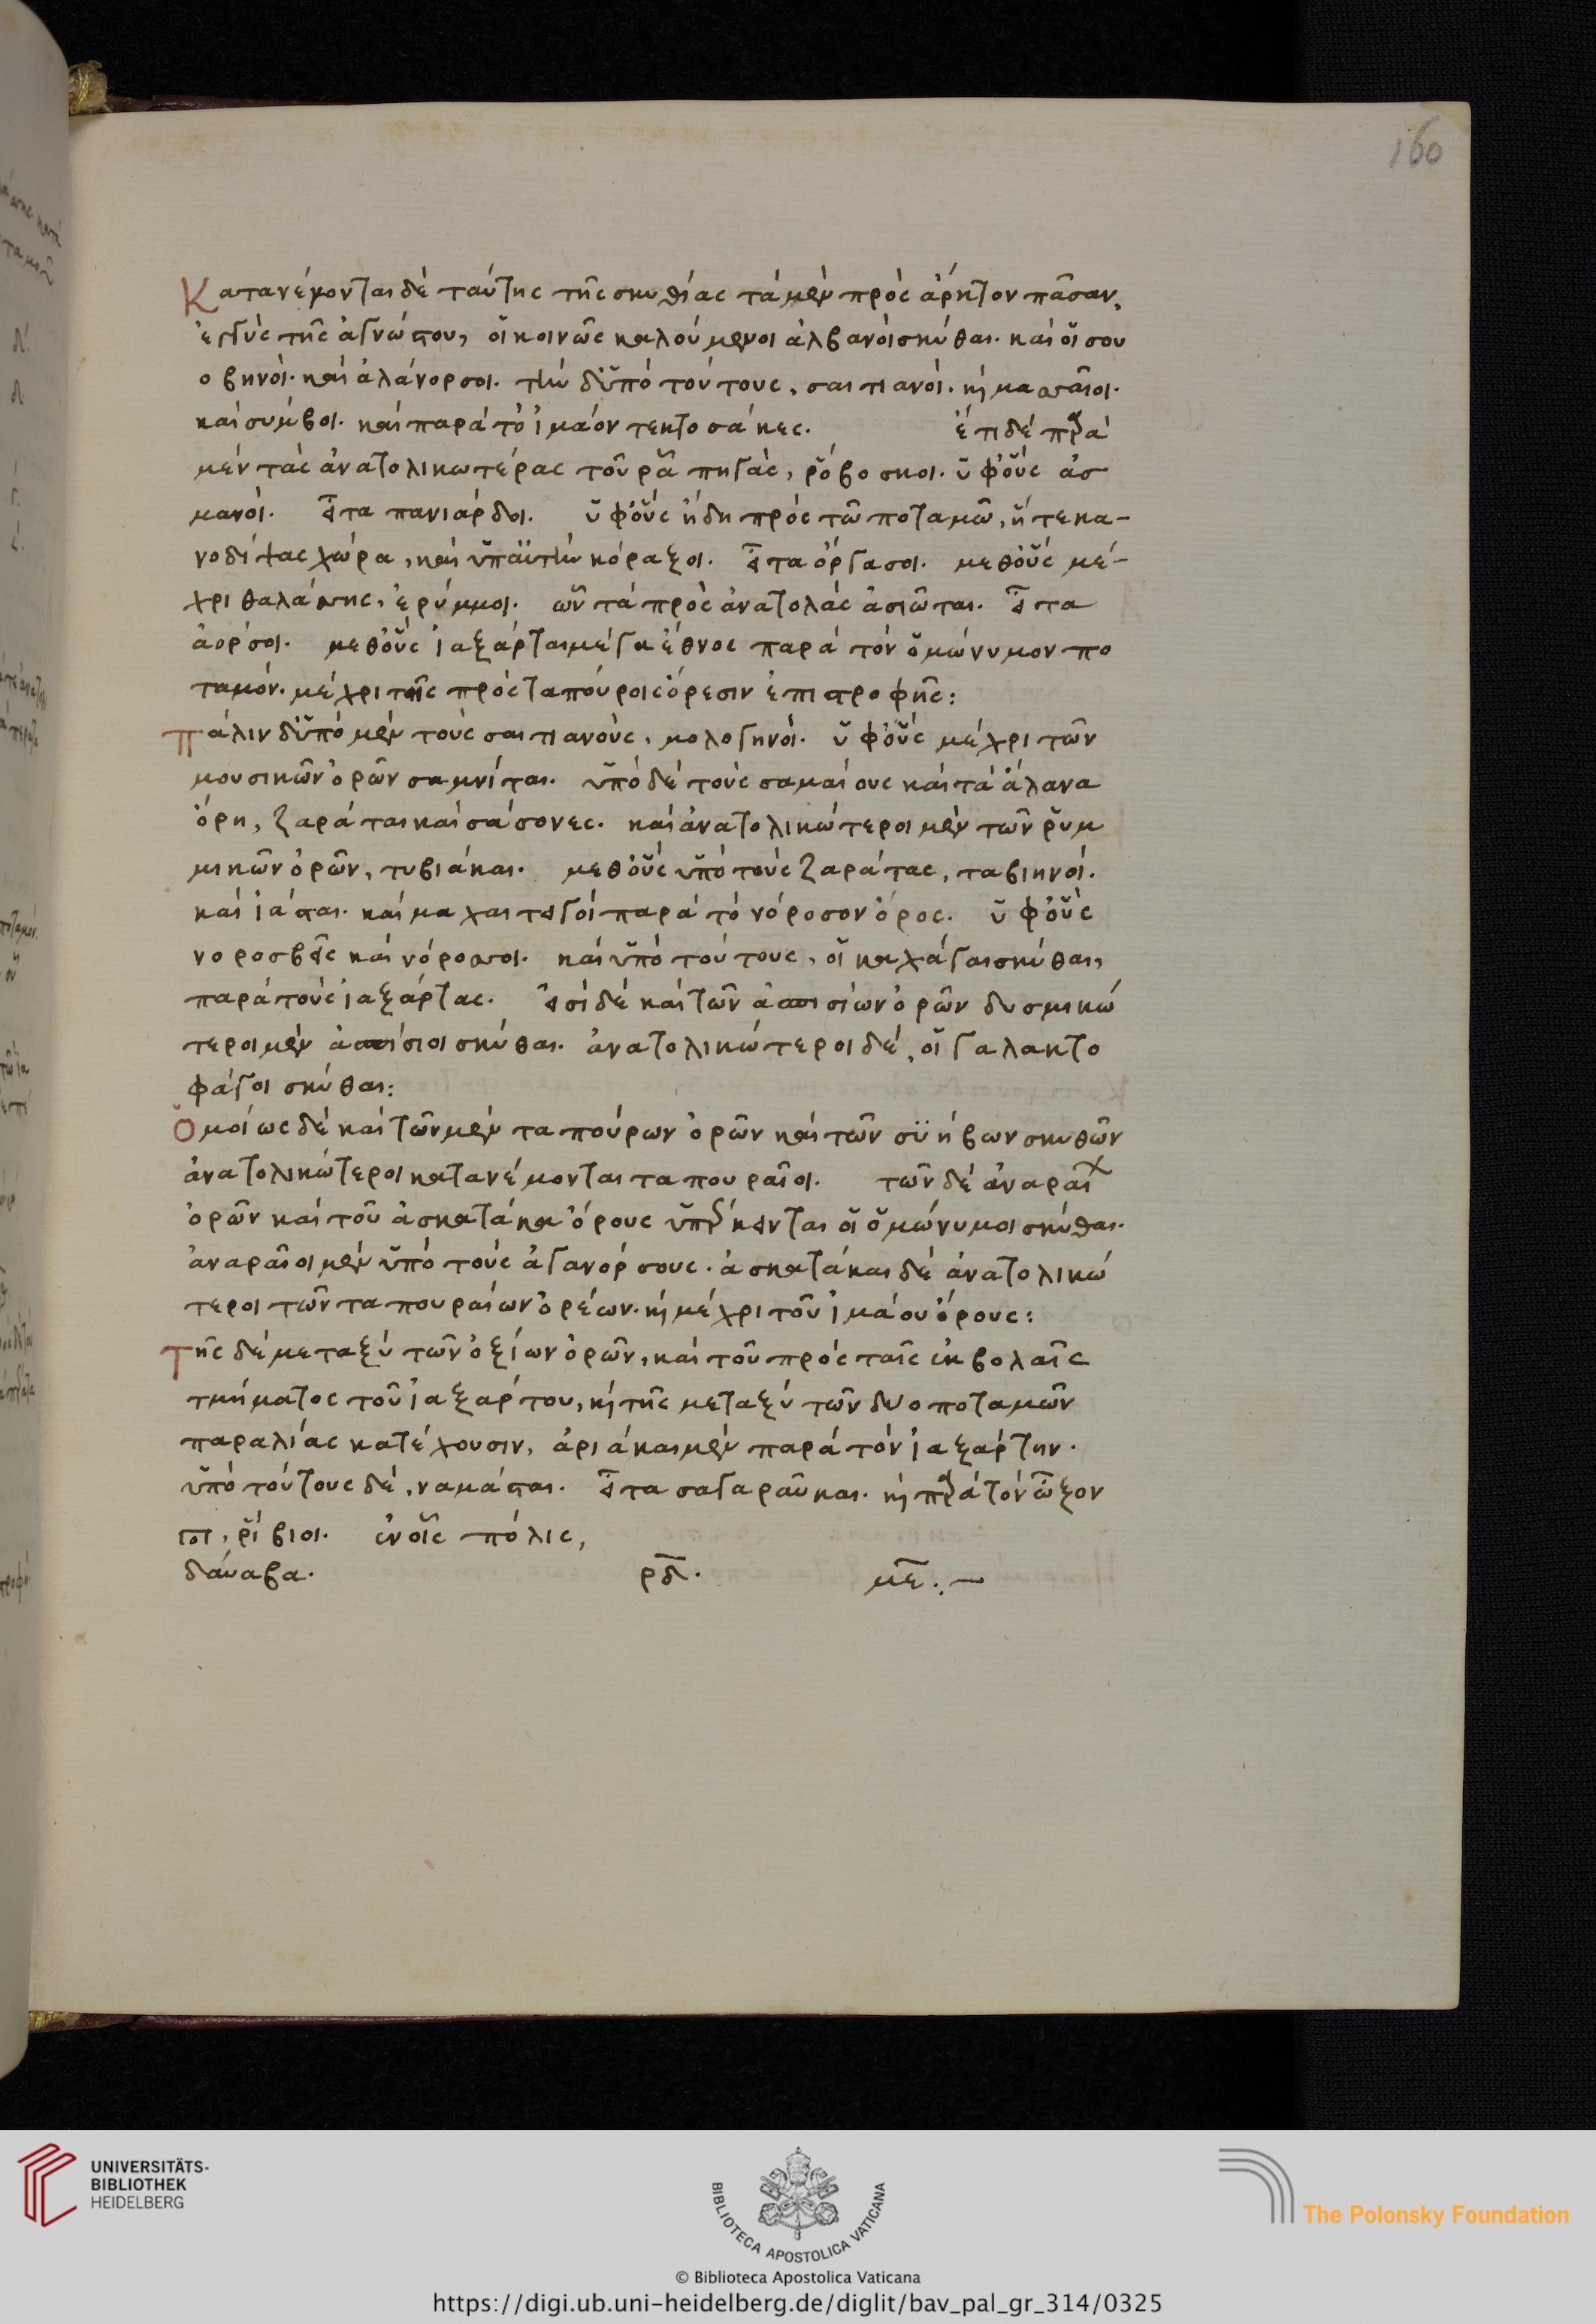 160
Κατανέμονται δὲ ταύτης τῆς σκυθίας τὰ μὲν πρὸς ἄρκτον πᾶσαν,
ἐγγὺς τῆς ἀγνώστου, οἱ κοινῶς καλούμενοι ἀλβανοὶ σκύθαι. καὶ οἱ σου
οβηνοί. καὶ ἀλάνορσοι. τὴν δ' ὑπὸ τούτους, σαιτιανοί. κ μασσαῖοι.
καὶ σύμβοι. καὶ παρὰ τὸ ἰμάον τεκτοσάκες. ἔτι δὲ παρὰ
μὲν τὰς ἀνατολικωτέρας τοῦ ρᾶ πηγὰς, ῥόβοσκοι. ὑφ' οὓς ἀσ
μανοί. εἶτα πανιάρδοι. ὑφ' οὓς ἤδη πρὸς τῶ ποταμῶ, ἥ τε κα-
νοδίψας χώρα, καὶ ὑπ' αὐτὴν κόραξοι. εἶτα ὄργασοι. μεθ' οὓς μέ-
χρι θαλάσσης, ἐρύμμοι. ὧν τὰ πρὸς ἀνατολὰς ἀσιῶται. εἶτα
ἀορσοι. μεθ' οὓς ἰαξάρται μέγα ἔθνος παρὰ τὸν ὁμώνυμον πο
ταμόν. μέχρι τῆς πρὸς ταπούροις ὄρεσιν ἐπιστροφῆς:
Πάλιν δ' ὑπὸ μὲν τοὺς σαιτιανοὺς, μολογηνοί. ὑφ' οὓς μέχρι τῶν
μουσικῶν ὀρῶν σαμνίται. ὑπὸ δὲ τοὺς σαμαίους καὶ τὰ ἄλανα
ὄρη, ζαράται καὶ σάσονες. καὶ ἀνατολικώτεροι μὲν τῶν ῥυμ
μικῶν ὀρῶν, τυβιάκαι. μεθ' οὓς ὑπὸ τοὺς ζαράτας, ταβιηνοί.
καὶ ἰάσται. καὶ μαχαιτεγοὶ παρὰ τὸ νόροσον ὄρος. ὑφ' οὓς
νοροσβεῖς καὶ νόροσσοι. καὶ ὑπὸ τούτους, οἱ καχάγαι σκύθαι,
παρὰ τοὺς ἰαξάρτας. εἰσὶ δὲ καὶ τῶν ἀσπισίων ὀρῶν δυσμικώ
τεροι μὲν ἀσπίσιοι σκύθαι. ἀνατολικώτεροι δὲ, οἱ γαλακτο
φάγοι σκύθαι:
Ὁμοίως δὲ καὶ τῶν μὲν ταπούρων ὀρῶν καὶ τῶν σϋήβων σκυθῶν
ἀνατολικώτεροι κατανέμονται ταπουραῖοι. τῶν δὲ ἀναραί
ὀρῶν καὶ τοῦ ἀσκατάκα ὄρους ὑπέρκεινται οἱ ὁμώνυμοι σκύθαι.
ἀναραῖοι μὲν ὑπὸ τοὺς ἀγανόρσους. ἀσκατάκαι δὲ ἀνατολικώ
τεροι τῶν ταπουραίων ὀρέων. κ μέχρι τοῦ ἰμάου ὄρους:
Τῆς δὲ μεταξὺ τῶν ὀξίων ὀρῶν, καὶ τοῦ πρὸς ταῖς ἐκβολαῖς
τμήματος τοῦ ἰαξάρτου, κ τῆς μεταξὺ τῶν δυο ποταμῶν
παραλίας κατέχουσιν, ἀριάκαι μὲν παρὰ τὸν ἰαξάρτην.
ὑπὸ τούτους δὲ, ναμάσται. εἶτα σαγαραῦκαι. κ παρὰ τὸν ὦξον
ποτ, ῥίβιοι. ἐν οἷς πόλις,
δάυαβα. ρδ. με.
UNIVERSITÄTS-
BIBLIOTHEK
HEIDELBERG
BIBLIOTECA APOSTOLICA VATICANA
The Polonsky Foundation
© Biblioteca Apostolica Vaticana
https://digi.ub.uni-heidelberg.de/diglit/bav_pal_gr_314/0325